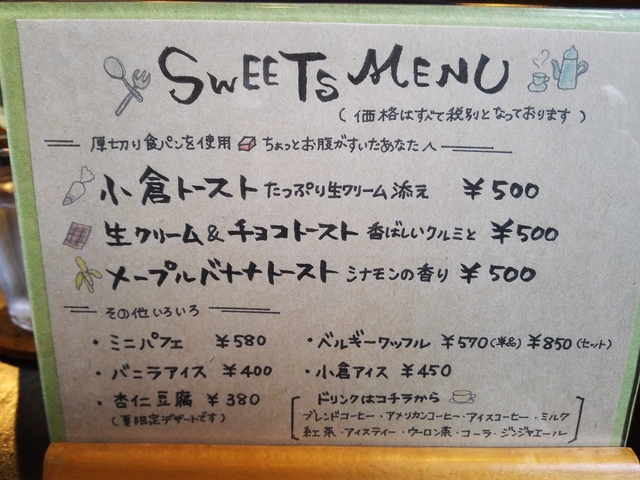 SWEETS MENU
(価格はすべて税別となっております)
厚切り食パンを使用 ちょっとお腹がすいたあなたへ
小倉トースト たっぷり生クリーム添え ¥500
生クリーム&チョコトースト 香ばしいクルミと ¥500
メープルバナナトースト シナモンの香り ¥500
その他いろいろ
・ミニパフェ ¥580 ・ベルギーワッフル ¥570(単品) ¥850(セット)
・バニラアイス ¥400 ・小倉アイス ¥450
・杏仁豆腐 ¥380 ドリンクはコチラから
(夏限定デザートです) ブレンドコーヒー・アメリカンコーヒー・アイスコーヒー・ミルク
紅茶・アイスティー・ウーロン茶・コーラ・ジンジャエール